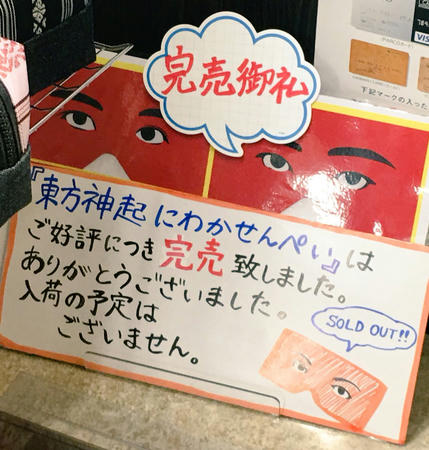 完売御礼
『東方神起 にわかせんぺい』は
ご好評につき 完売 致しました。
ありがとうございました。
入荷の予定は
ございません。
SOLD OUT!!
VISA
下記マークの入った